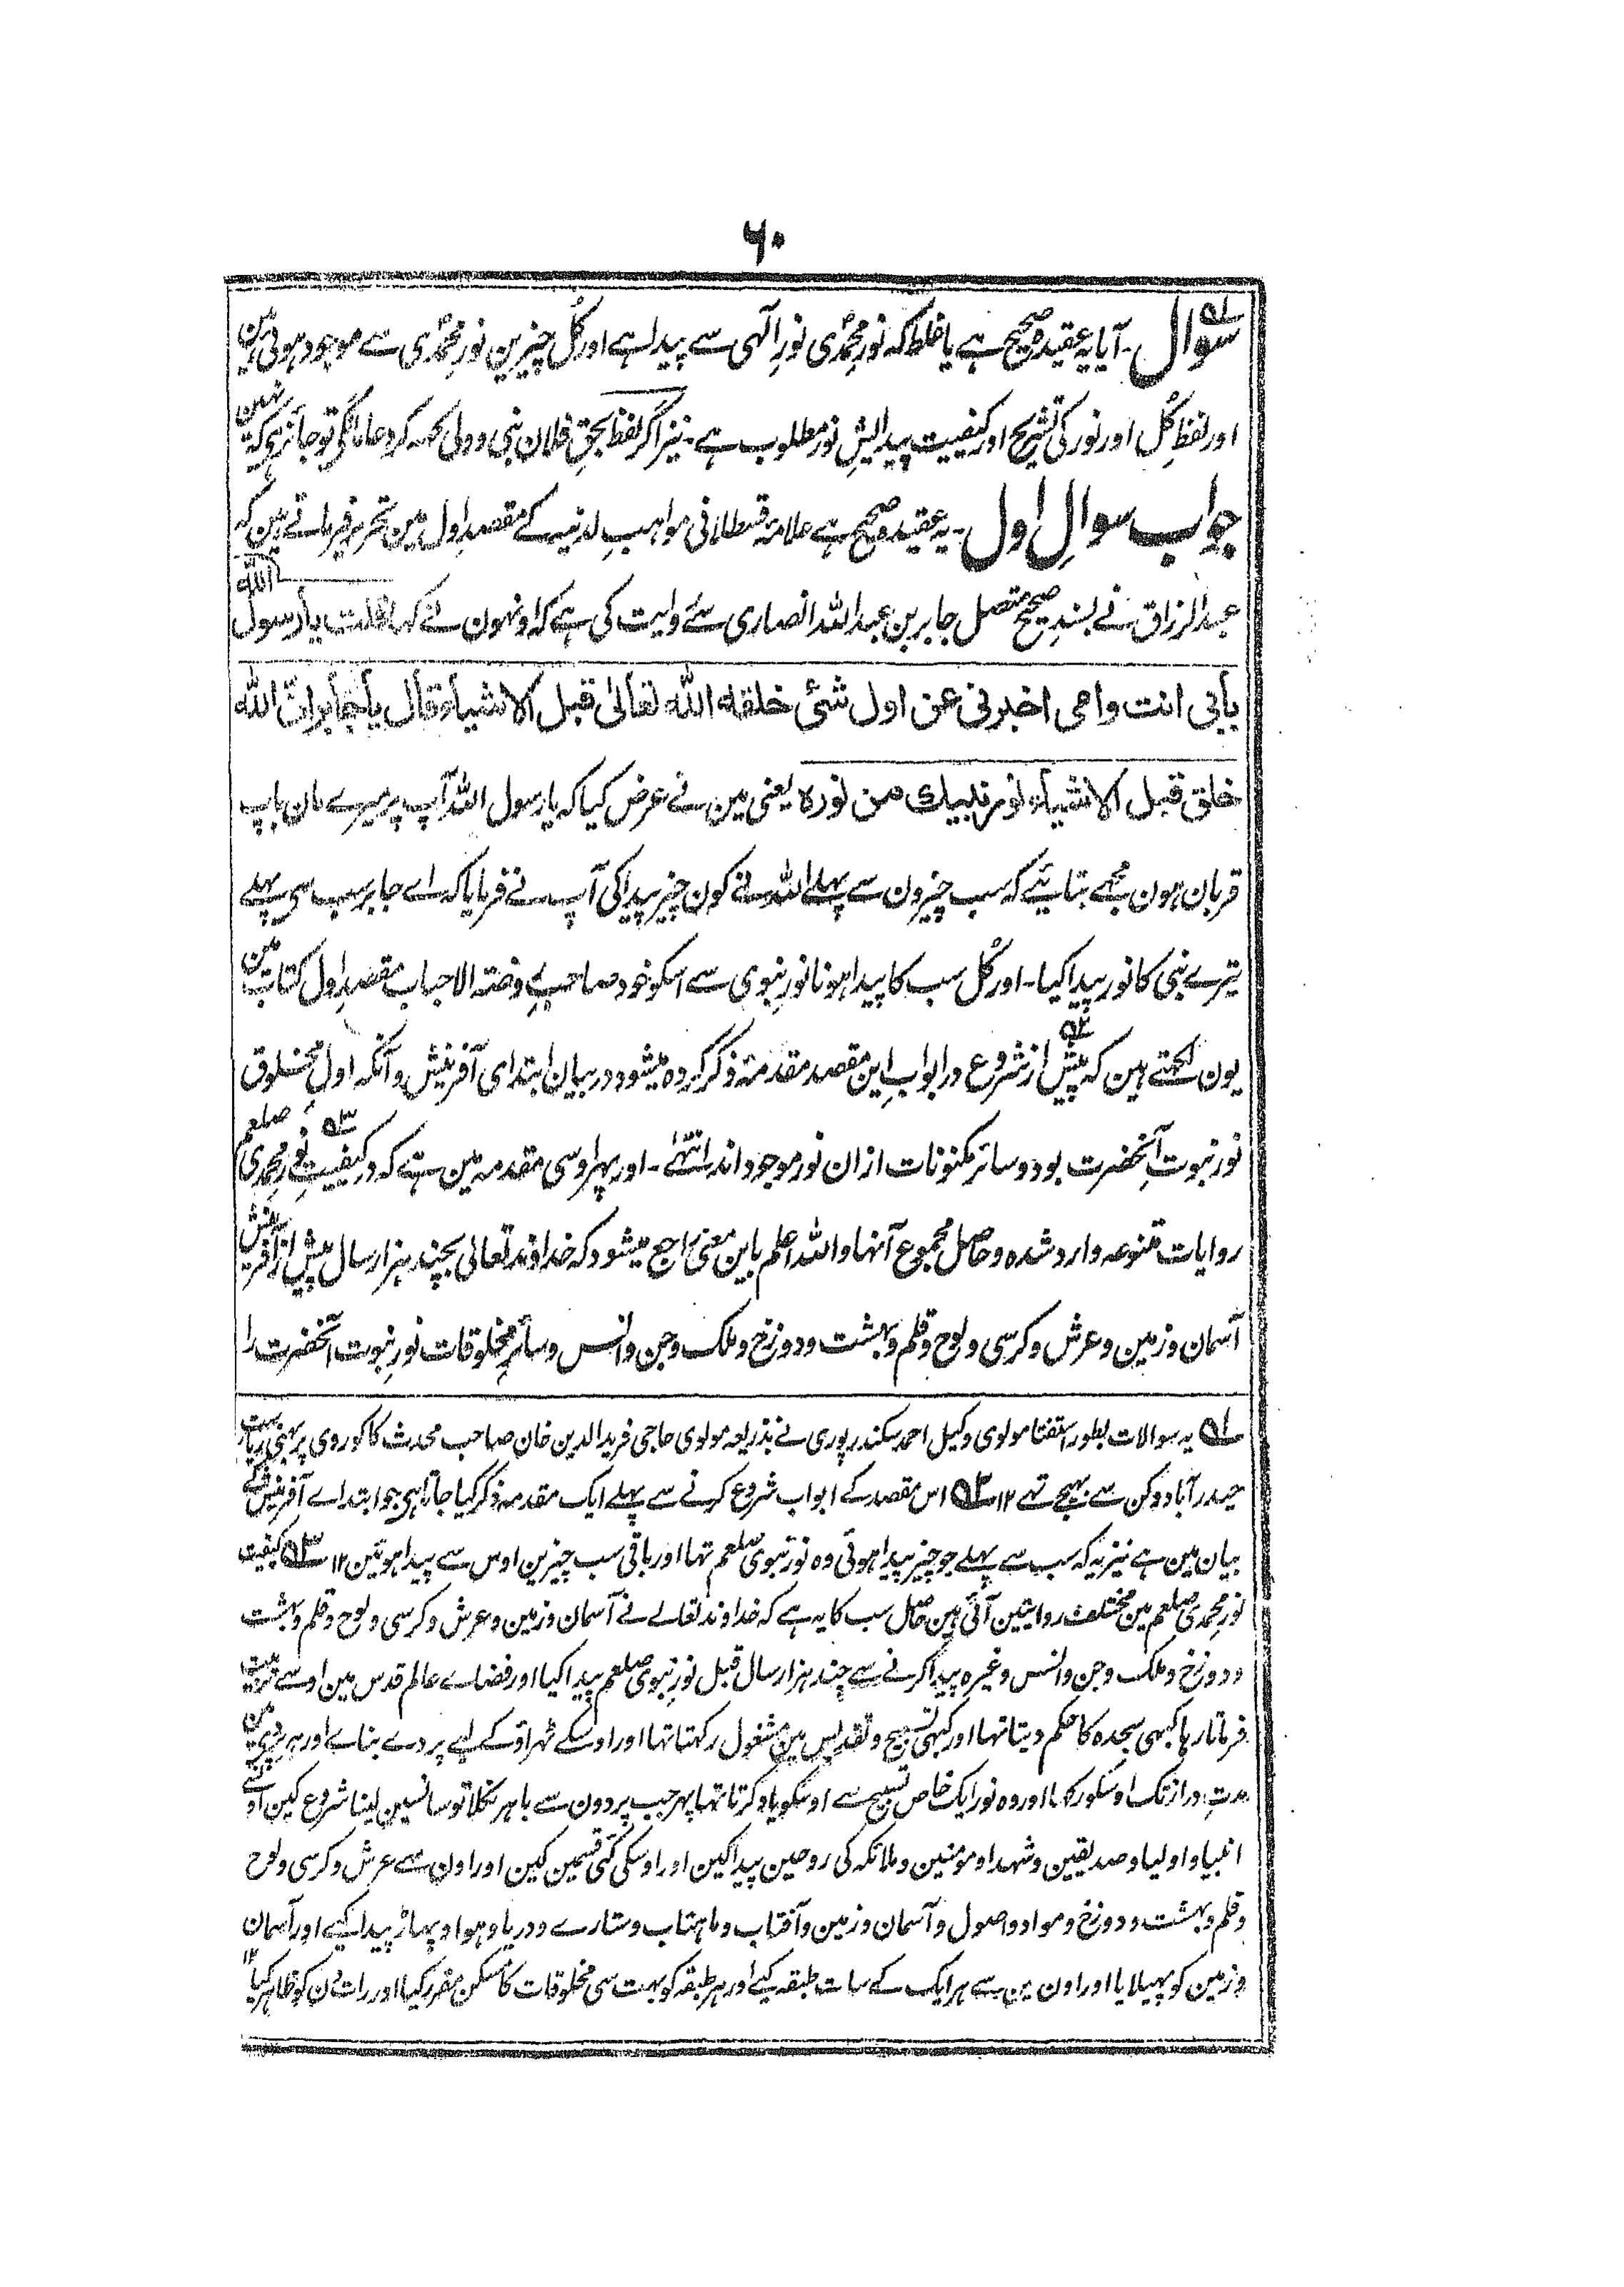 ۶۰
سوال ۱ـ آیا یہ عقیدہ صحیح ہے یا غلط کہ نورِ محمدؐی نورِ الٰہی سے پیدا ہے اور کُل چیزین نورِ محمدؐی سے موجود ہوئی ہین
اور لفظِ کُل اور نور کی تشریح اور کیفیت پیدایشِ نور مطلوب ہے۔ نیز اگر لفظ بحقِ فلان نبی و ولی کہہ کر دعا مانگی تو جائز ہی کہ نہین
جواب سوالِ اول ۔ یہ عقیدہ صحیح ہے علامہ قسطلانی مواہبِ لدنیہ کے مقصدِ اول مین تحریر فرماتے ہین کہ
عبد الرزاق نے بسندِ صحیح متصل جابر بن عبد اللہ انصاری سے روایت کی ہے کہ اونہون نے کہا قلت یا رسول اللہ
بأبی انت وامی اخبرنی عن اول شئ خلقہ اللہ تعالیٰ قبل الاشیاء قال یا جابر انّ اللہ
خلق قبل الاشیاء نور نبیك من نورہ یعنی مین نے عرض کیا کہ یا رسول اللہ آپ پر میرے مان باپ
قربان ہون مجھے بتائیے کہ سب چیزون سے پہلے اللہ نے کون چیز پیدا کی آپ نے فرمایا کہ اے جابر سب سی پہلے
تیرے نبی کا نور پیدا کیا۔ اور کُل سب کا پیدا ہونا نورِ نبوی سے اسکو خود صاحبِ روضۃ الاحباب مقصدِ اول کتاب مین
یون لکھتے ہین کہ ۲ پیش از شروع در ابوابِ این مقصد مقدمۃ ذکر کردہ میشود در بیان ابتدای آفرینش و آنکہ اول مخلوق
نور نبوتِ آنحضرت بود و سائر مکنونات ازان نور موجود اند انتہٰے ۔ اور پہر اوسی مقدمہ مین ہے کہ ۳ در کیفیتِ نورِ محمدی صلعم
روایات متنوعہ وارد شدہ و حاصل مجموع آنہا واللہ اعلم باین معنی راجع میشود کہ خداوند تعالی بچند ہزار سال پیش از آفرینش
آسمان و زمین و عرش و کرسی و لوح و قلم و بہشت و دوزخ و ملک و جن و انس و سائرِ مخلوقات نورِ نبوت آنحضرت را
۱ یہ سوالات بطور استفتا مولوی وکیل احمد سکندرپوری نے بذریعہ مولوی حاجی فرید الدین خان صاحب محدث کاکوروی پر بہنی ریاست
حیدرآباد دکن سے بھیجے تھے ۱۲ ۲ اس مقصد کے ابواب شروع کرنے سے پہلے ایک مقدمہ ذکر کیا جاتا ہی جو ابتداے آفرینش کے
بیان مین ہے نیز یہ کہ سب سے پہلے جو چیز پیدا ہوئی وہ نورِ نبوی صلعم تہا اور باقی سب چیزین اوس سے پیدا ہوئین ۱۲ ۳ کیفیت
نورِ محمدی صلعم مین مختلف روایتین آئی ہین حاصل سب کا یہ ہے کہ خداوند تعالے نے آسمان و زمین و عرش و کرسی و لوح و قلم و بہشت
و دوزخ و ملک و جن و انس وغیرہ پیدا کرنے سے چند ہزار سال قبل نورِ نبوی صلعم پیدا کیا اور فضاے عالم قدس مین اوسے تربیت
فرماتا رہا کبھی سجدہ کا حکم دیتا تہا اور کبھی تسبیح و تقدیس مین مشغول رکھتا تہا اور اوسکے ٹھراؤ کے لیے پردے بنائے اور ہر پردہ مین
مدتِ دراز تک اوسکو رکہا اور وہ نور ایک خاص تسبیح سے اوسکو یاد کرتا تہا پہر جب پردون سے باہر نکلا تو سانسین لینا شروع کین اوسنے
انبیا و اولیا و صدیقین و شہدا و مومنین و ملائکہ کی روحین پیدا کین اور اوسکی کئی قسمین کین اور اون سے عرش و کرسی و لوح
و قلم و بہشت و دوزخ و مواد و اصول و آسمان و زمین و آفتاب و ماہتاب و ستارے و دریا و ہوا و پہاڑ پیدا کیے اور آسمان
و زمین کو پھیلایا اور اون مین سے ہر ایک کے سات طبقہ کیے اور ہر طبقہ کو بہت سی مخلوقات کا مسکن مقرر کیا اور رات دن کو ظاہر کیا ۱۲